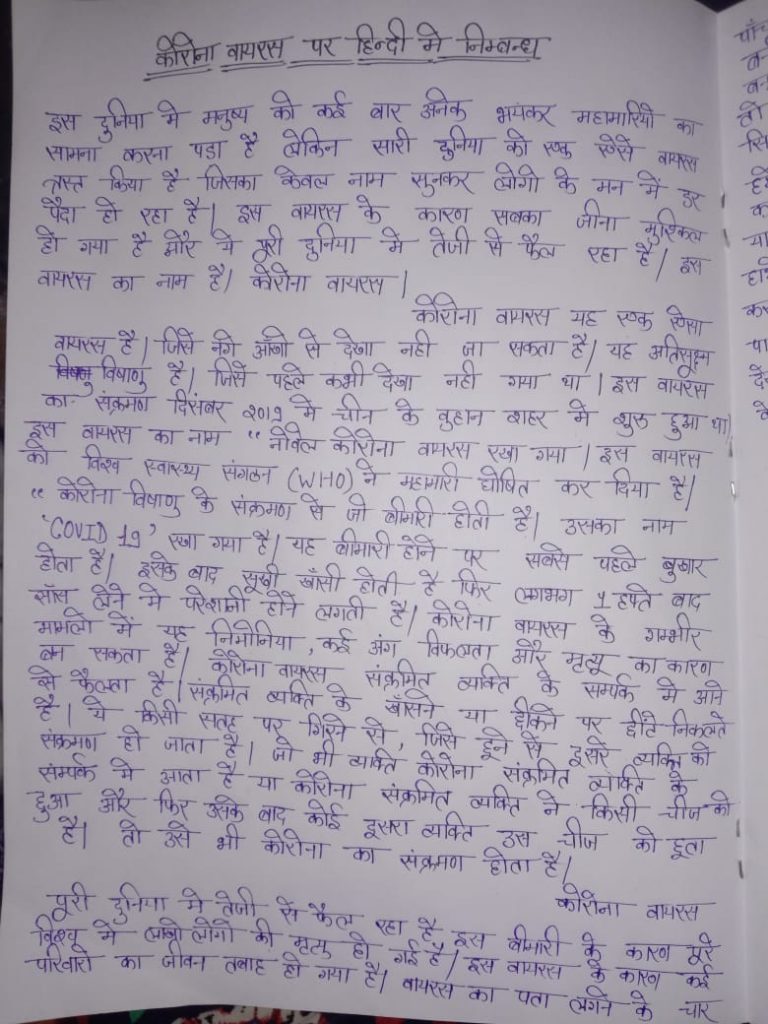 कोरोना वायरस पर हिन्दी मे निम्बन्ध
इस दुनिया मे मनुष्य को कई बार अनेक भयंकर महामारियो का
सामना करना पड़ा है लेकिन सारी दुनिया को एक ऐसे वायरस
त्रस्त किया है जिसका केवल नाम सुनकर लोगो के मन में डर
पैदा हो रहा है। इस वायरस के कारण सबका जीना मुश्किल
हो गया है और ये पूरी दुनिया मे तेजी से फैल रहा है। इस
वायरस का नाम है। कोरोना वायरस।
कोरोना वायरस यह एक ऐसा
वायरस है। जिसे नंगे आँखो से देखा नही जा सकता है। यह अतिसूक्ष्म
विषाणु है। जिसे पहले कभी देखा नही गया था। इस वायरस
का संक्रमण दिसंबर 2019 मे चीन के वुहान शहर मे शुरू हुआ था।
इस वायरस का नाम "नोवेल कोरोना वायरस रखा गया। इस वायरस
को विश्व स्वास्थ्य संगलन (WHO) ने महामारी घोषित कर दिया है।
"कोरोना विषाणु के संक्रमण से जो बीमारी होती है। उसका नाम
'COVID 19' रखा गया है। यह बीमारी होने पर सबसे पहले बुखार
होता है। इसके बाद सूखी खाँसी होती है फिर लगभग 1 हफ्ते बाद
साँस लेने मे परेशानी होने लगती है। कोरोना वायरस के गम्भीर
मामलो में यह निमोनिया, कई अंग विफलता और मृत्यू का कारण
बन सकता है। कोरोना वायरस संक्रमित व्यक्ति के सम्पर्क मे आने
से फैलता है। संक्रमित व्यक्ति के खाँसने या छीकने पर छीटे निकलते
है। ये किसी सतह पर गिरने से, जिसे छूने से दूसरे व्यक्ति को
संक्रमण हो जाता है। जो भी व्यक्ति कोरोना संक्रमित व्यक्ति के
संम्पर्क मे आता है या कोरोना संक्रमित व्यक्ति ने किसी चीज को
छुआ और फिर उसके बाद कोई दूसरा व्यक्ति उस चीज को छूता
है। तो उसे भी कोरोना का संक्रमण होता है।
कोरोना वायरस
पूरी दुनिया मे तेजी से फैल रहा है इस बीमारी के कारण पूरे
विश्व मे लाखो लोगो की मृत्यु हो गई है। इस वायरस के कारण कई
परिवारो का जीवन तबाह हो गया है। वायरस का पता लगने के चार